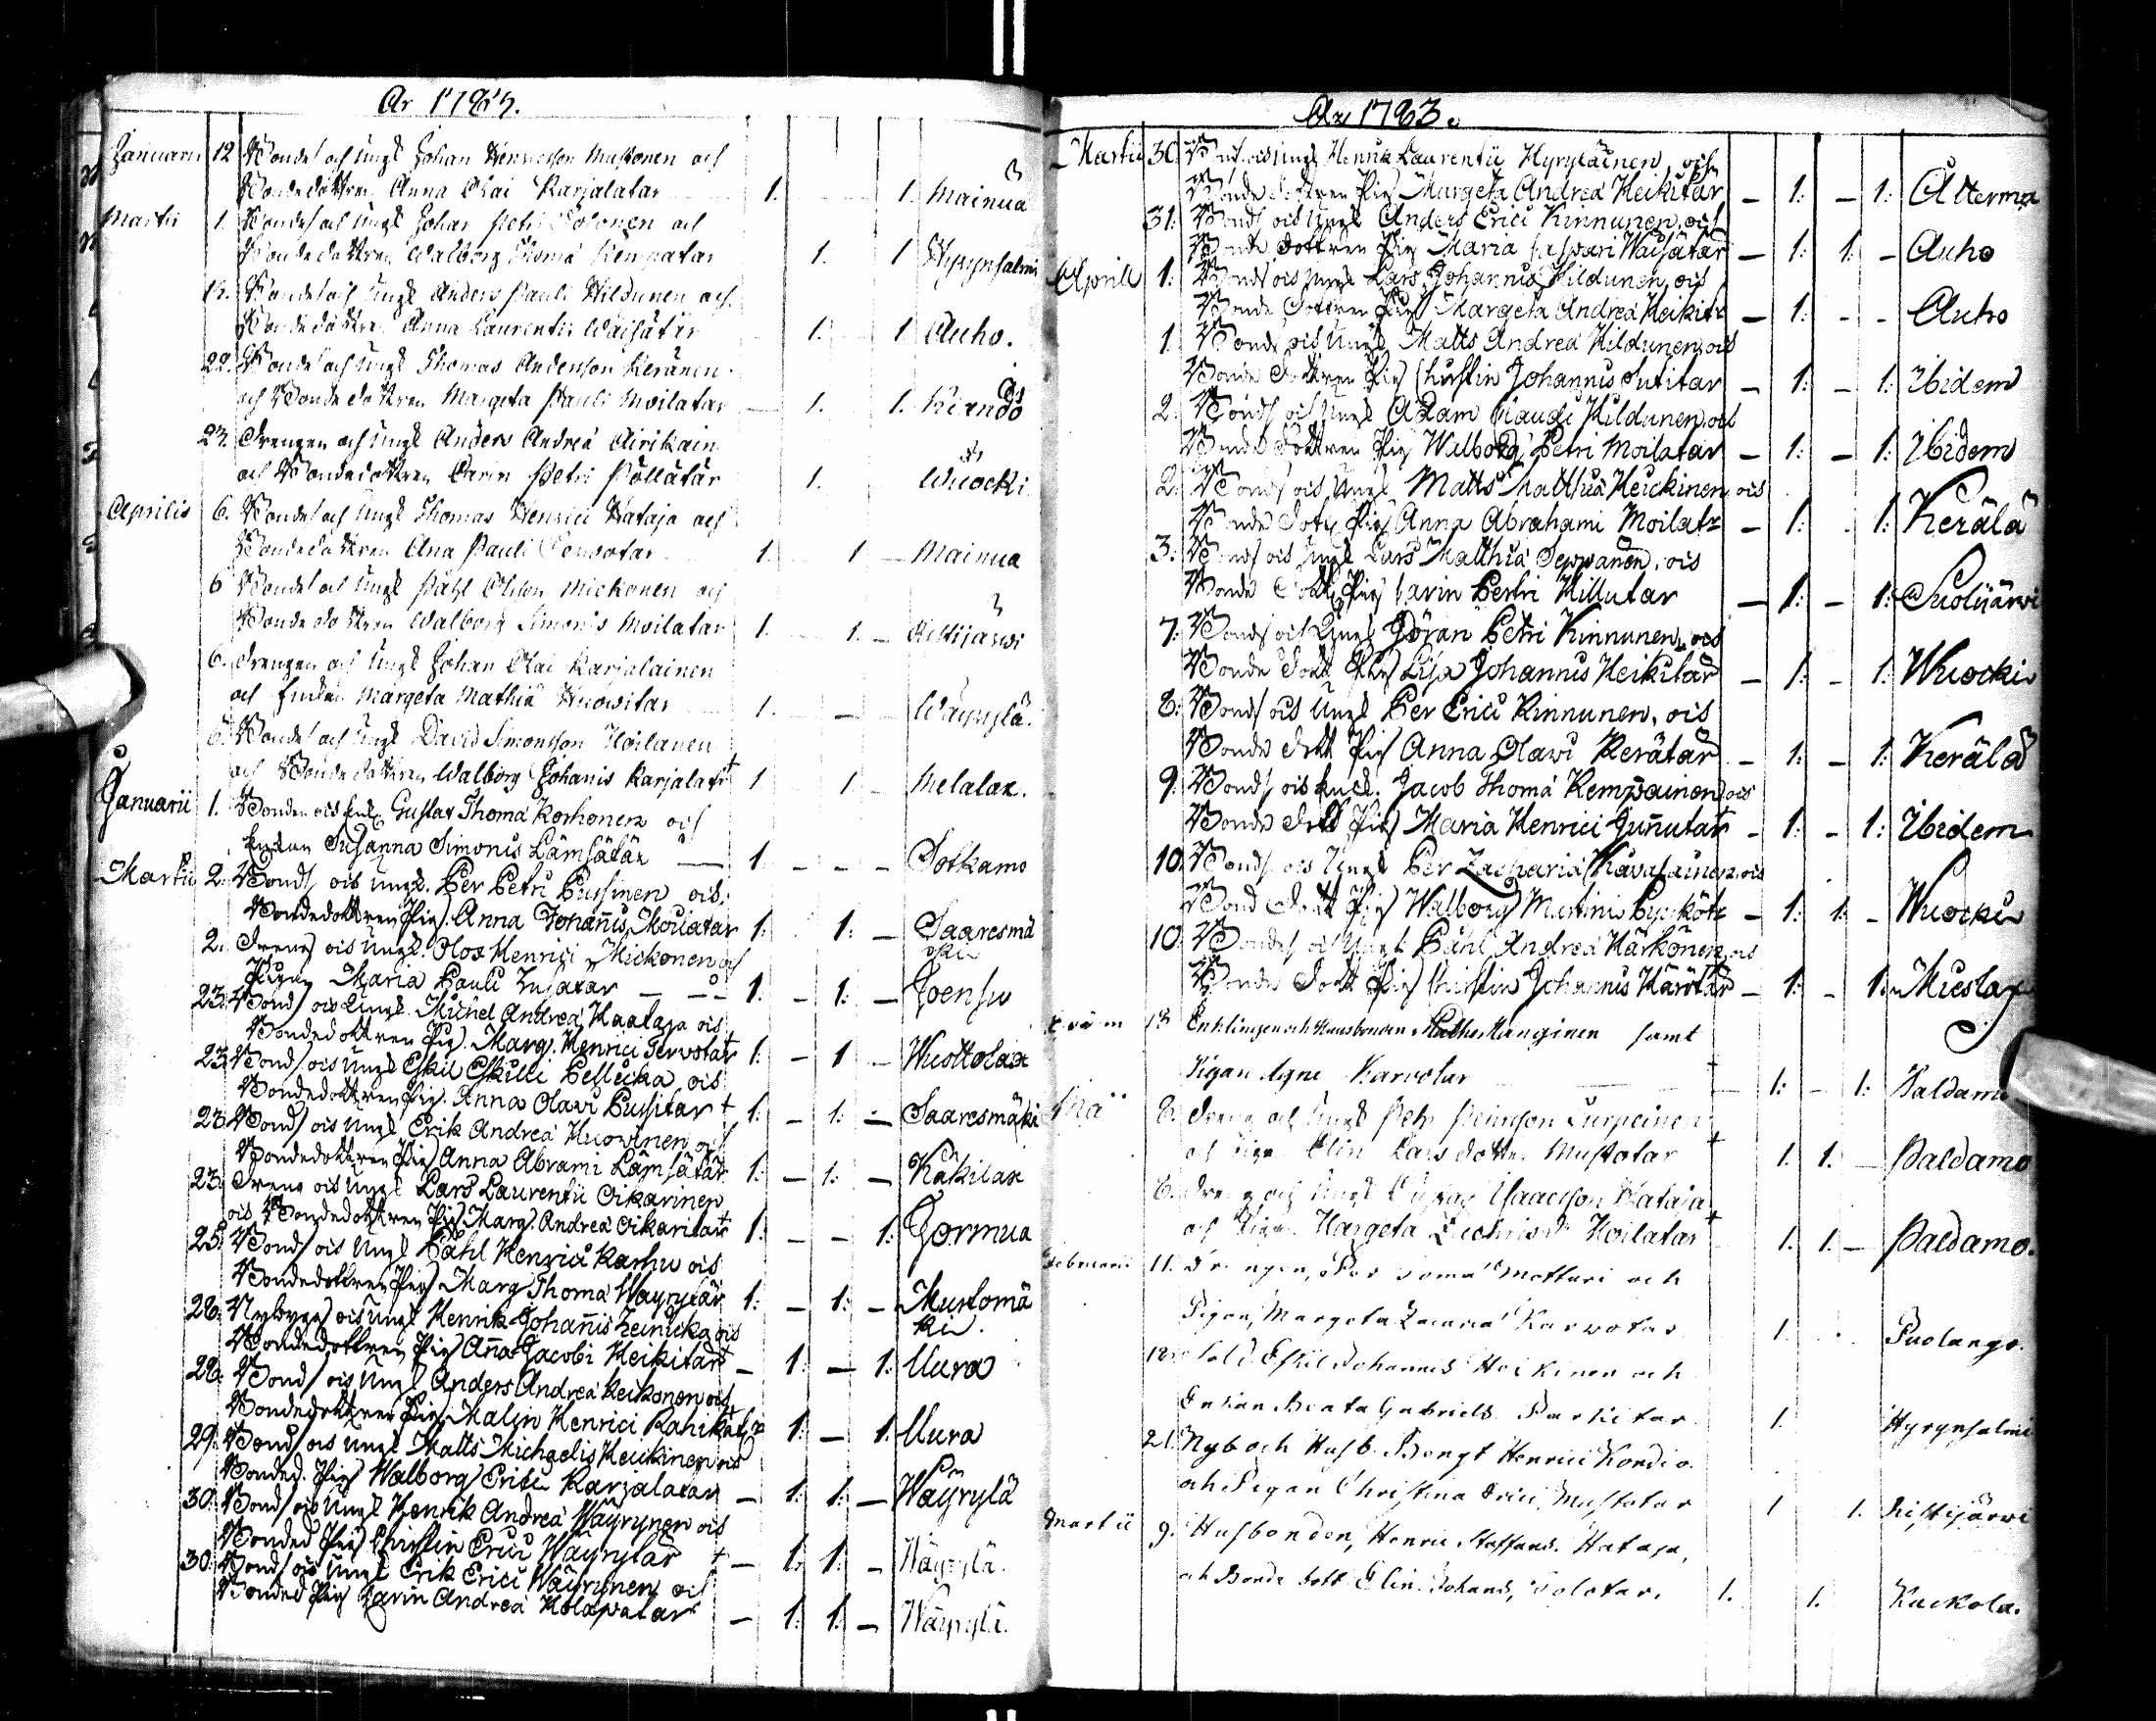 År 1783.
Januarii 12 Bondes. och Ungk Johan Henricsson Mustonen och
Bondedottren Anna Olai Karjalatar 1. 1. Mainua
Martii 1. Bondes. och Ungk Johan Petri Tolonen och
Bondedottren Walborg Thomæ Kemppatar 1. 1 Hyrynsalmi
12. Bondes. och Ungk Anders Pauli Hildunen och
Bondedottren Anna Laurentii Waisätär 1. 1 Auho.
22. Bonde och Ungk Thomas Andersson Keränen
och Bondedottren Margeta Pauli Moilatar 1. 1. Kiando
23. Drengen och Ungk Anders Andreæ Airikain
och Bondedottren Carin Petri Pöllätär 1. Wuocki
Aprilis 6. Bondes. och Ungk Thomas Henrici Hataja och
Bondedottren Ana Pauli Terwotar 1. 1 — Mainua
6 Bondes. och Ungk Påhl Olsson Mickonen och
Bondedottren Walborg Simonis Moilatar 1. 1. — Ristijärwi
6. Drengen och Ungk Johan Olai Karjalainen
och Enkan Margeta Mathiæ Huowitar 1. — Wäyrylä.
6. Bondes. och Ungk David Simonsson Moilanen
och Bondedottren Walborg Johanis Karjalatr † 1 1 Melalax.
Januarii 1. Bonden och Enkl. Gustav Thomæ Korhonen och
Enkan Susanna Simonis Lämsätär — 1. - - - Sotkamo
Martii 2. Bonds. och Ungk. Per Petri Pussinen och
Bondedottren Pig. Anna Johannis Moilatar 1: 1: — Saaresmä
ki
2. Dreng och Ungk. Olof Henrici Mickonen och
Pigan Maria Pauli — 1: - 1: — Joensu
23. Bonds. och Ungk. Michel Andreæ Haataja och
Bondedottren Pig. Marg. Henrici Tervotar † 1: - 1 — Wuottolax
23 Bonds. och Ungk Eskil Eskilli Pellicka och
Bondedottren Pig. Anna Olavi Pussitar † 1: — 1: — Saaresmäki
23. Bonds. och Ungk Erik Andreæ Huowinen och
Bondedottren Pig Anna Abrami Lämsätär 1: — 1: — Käkilax
23. Dreng och Ungk Lars Laurentii Oikarinen
och Bondedottren Pig Marg. Andreæ Oikaritar † 1: — — 1: Jormua
25. Bonds. och Ungk Påhl Henrici Karhu och
Bondedottren Pig Marg Thomæ Wäyrytär 1: — 1: — Mustomä
ki.
26. Nybygg. och Ungk Henrik Johannis Leinicka och
Bondedottren Pig Anna Jacobi Heikitar † — 1: — 1: Uura
28. Bonds. och Ungk Anders Andreæ Keikonen och
Bondedottren Pig Malin Henrici Ranikatr † 1: — 1: Uura
29. Bonds. och Ungk Matts Michaelis Heickinen och
Bonded. Pig Walborg Erici Karjalatar — 1: 1: — Wäyrylä
30. Bonds. och Ungk Henrik Andreæ Wäyrynen och
Bonded Pig Christin Erici Wäyrytär † — 1: 1: — Wäyrylä.
30. Bonds. och Ungk Erik Erici Wäyrynen och
Bonded Pig Carin Andreæ Holapatar — 1: 1: — Wäyrylä.
År 1783.
Martii 30. Bonds. och Ungk Henrik Laurentii Hyryläinen, och
Bonde dottren Pig Margeta Andreæ Heikitär — 1: — 1: Alterma
31: Bonds. och Ungk Anders Erici Kinnunen, och
Bonde dottren Pig Maria Caspari Waisätar — 1: 1: — Auho
Aprill 1: Bonds. och Ungk Lars Johannis Hildunen, och
Bonde Dottren Pig Margeta Andreæ Heikitr — 1: - - Auho
1. Bonds. och Ungk Matts Andreæ Hildunen och
Bonde Dottren Pig Christin Johannis Sutitar — 1: — 1: Ibidem
2. Bonds. och Ungk Adam Claudi Hildunen och
Bonde Dottren Pig Walborg Petri Moilatar — 1: — 1: Ibidem
2. Bonds. och Ungk Matts Matthiæ Heickinen och
Bonde Dott. Pig Anna Abrahami Moilatr — 1: . 1: Kerälä
3: Bonds. och Ungk Lars Matthiæ Seppänen, och
Bonde Dott. Pig Carin Petri Hillutar — 1: — 1: Suolijärwi
7: Bonds. och Ungk Göran Petri Kinnunen, och
Bonde Dott Pig Lisa Johannis Heikitar — 1: — 1: Wuocki
8: Bonds. och Ungk Per Erici Kinnunen, och
Bonde dott Pig Anna Olavi Kerätär — 1: — 1: Kerälä
9. Bonds. och Enkl. Jacob Thomæ Kempainen och
Bonde dott Pig Maria Henrici Juñutar — 1: — 1: Ibidem
10. Bonds. och Ungk Per Zachariæ Kavalainen, och
Bond dott Pig Walborg Martini Pyykötr — 1: 1: — Wuocki
10. Bondes. och Ungk Påhl Andreæ Härkönen, och
Bonde Dott Pig Christin Johannis Kärötär — 1: — 1: Mieslax
18 Enklingen och Husbonden Mathis Manginen samt
Pigan Agne Karvotar † — 1: — 1: Paldamo
Maii 8. Dreng och Ungk Petr Persson Turpeinen
och Pigan Elin Larsdotter Mustotar † 1. 1. — Paldamo
8. Dreng och Ungk Gustaf Isaacsson Hataja
och Pigan Margeta Moilatar † 1. 1. — Paldamo.
Februarii 11. Drengen, Per Tomæ Mottari och
Pigan, Margeta Zacariæ Karwotar 1. . Puolango.
12. Sold. Eskil Johannis Heikinen och
Enkan Beata Gabriels. Parkitar 1. Hyrynsalmi
21. Nyb och Husb. Bengt Henrici Kordio
och Pigan Christina Erici, Mustotar 1 1. Ristijärwi
Martii 9. Husbonden, Henric Staffans. Hataja,
och Bonde dott. Elin Johans, Tolotar. 1. 1. Kuckola.